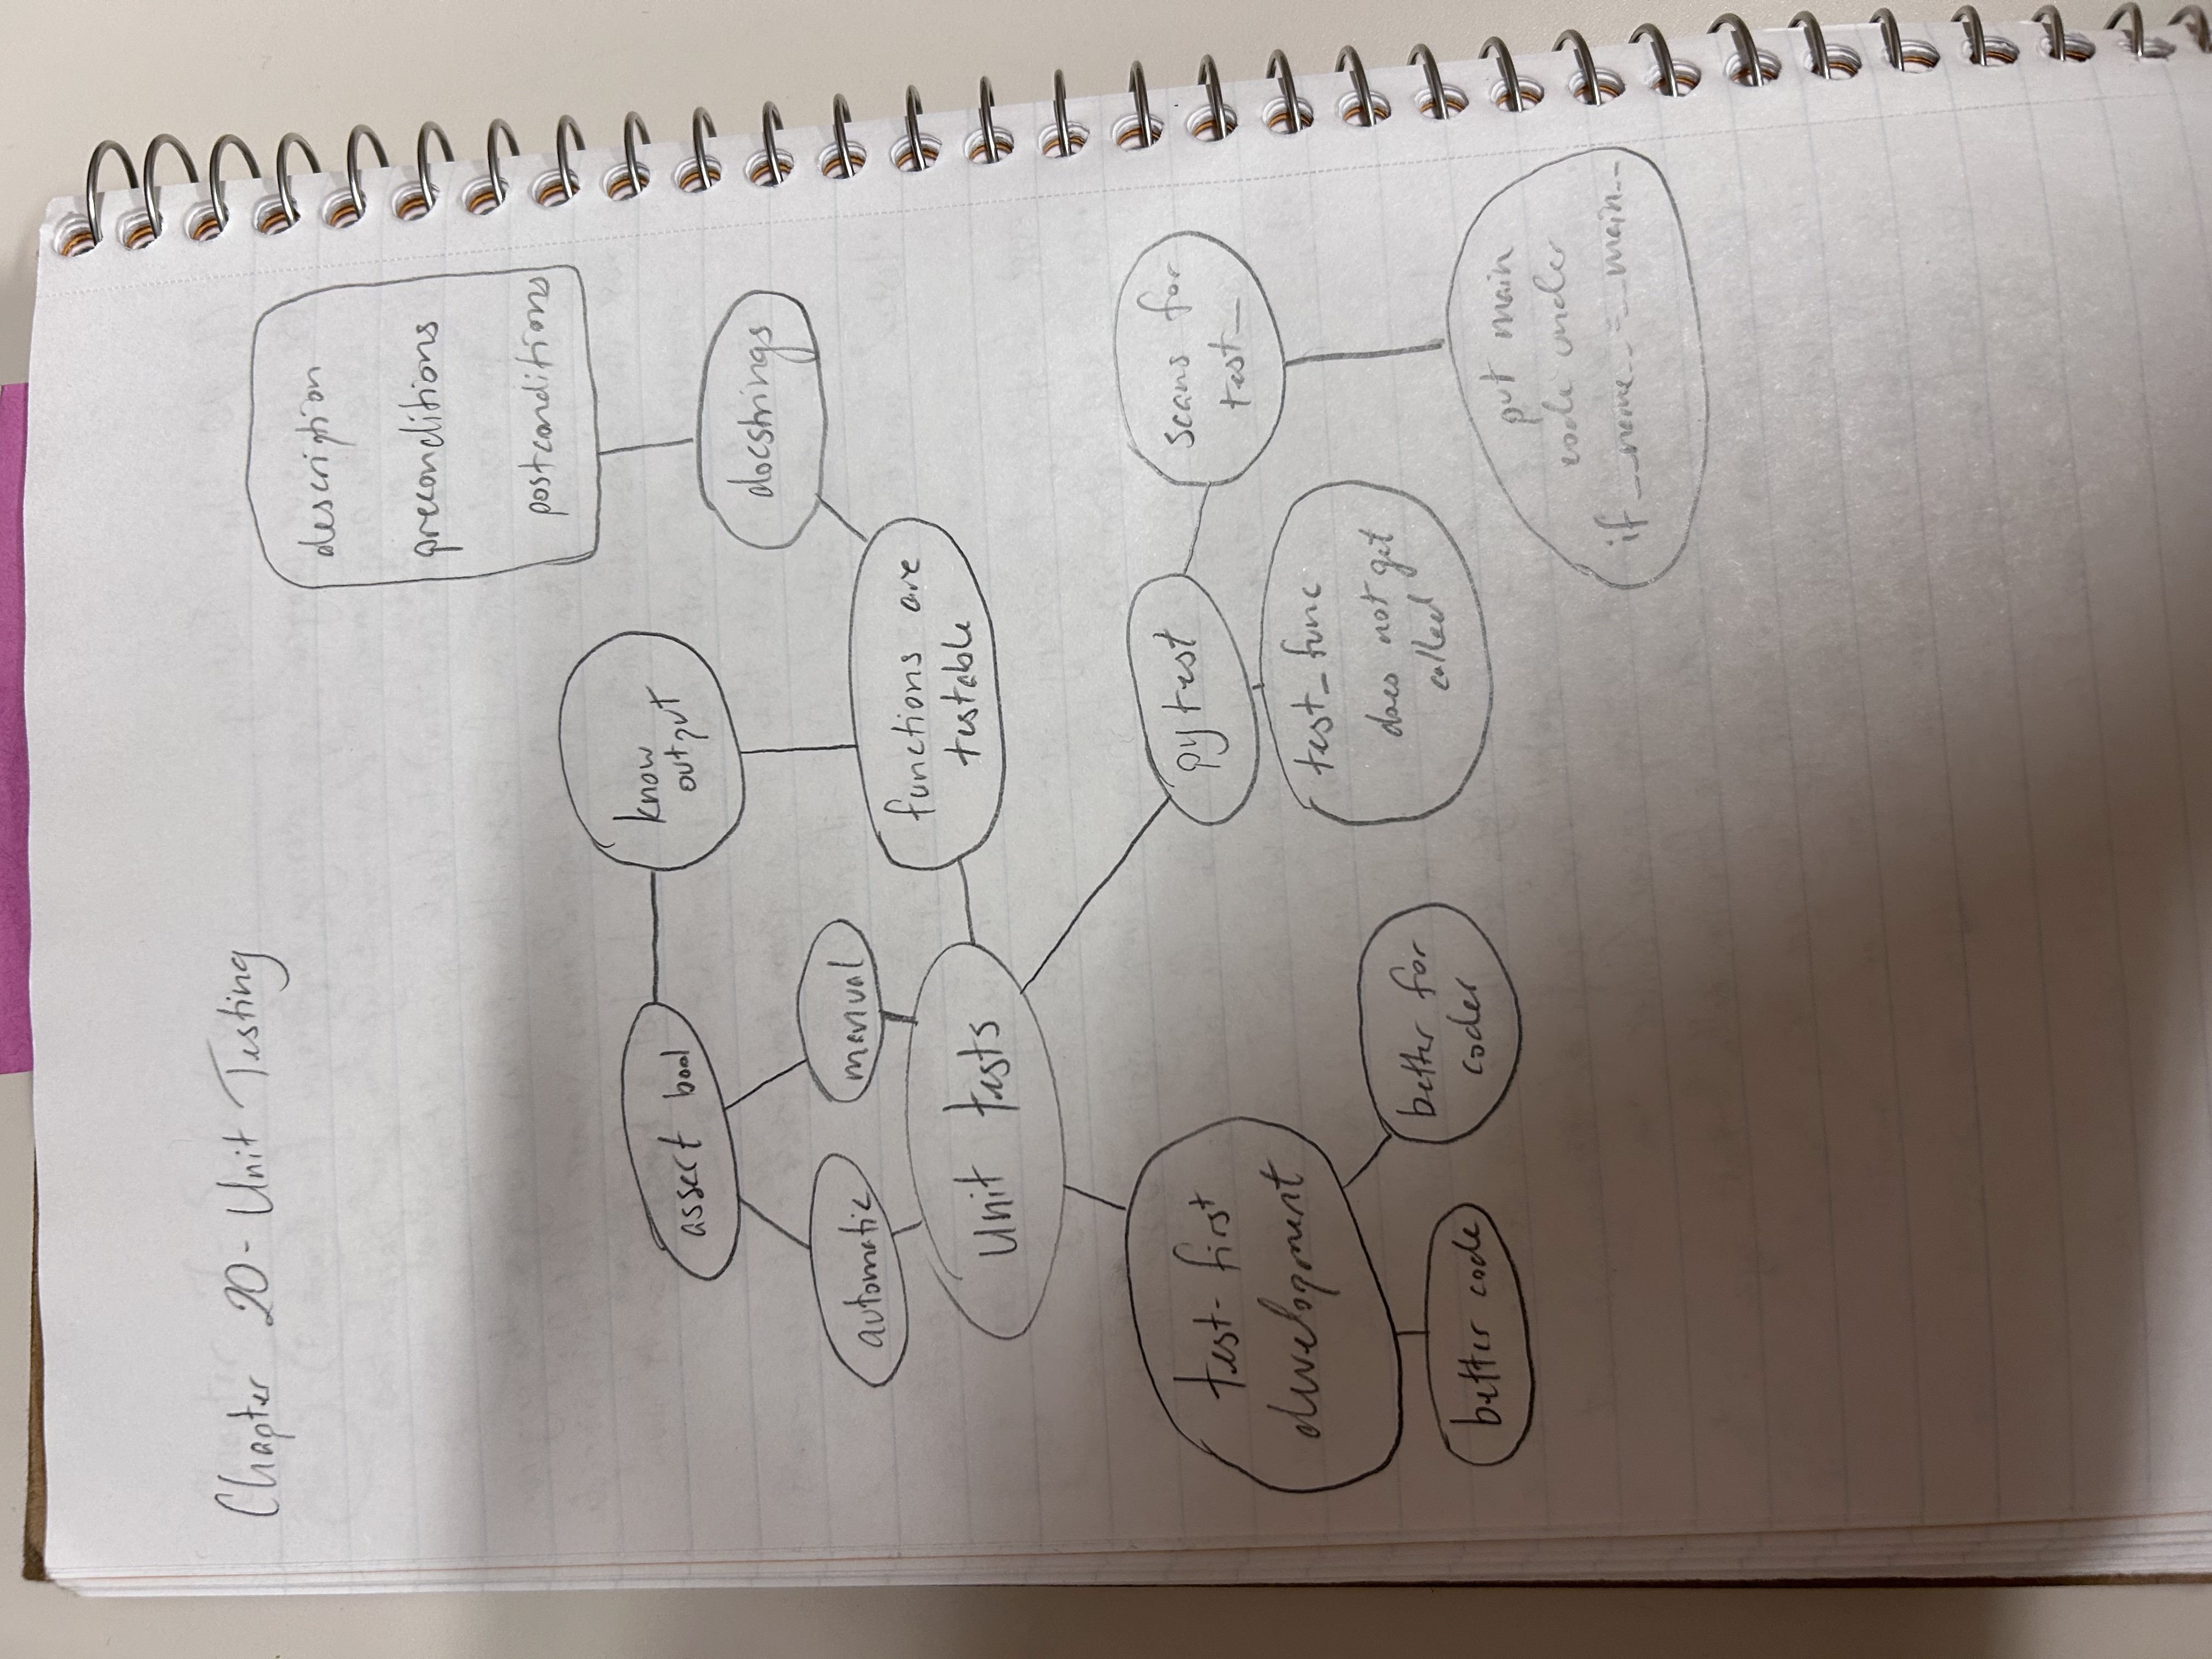 Chapter 20 - Unit Testing
description
preconditions
postconditions
know
output
assert bool
docstrings
automatic
manual
functions are
testable
Unit tests
test-first
development
pytest
scans for
test_
test_func
does not get
called
better code
better for
coder
put main
code under
if __name__ = __main__